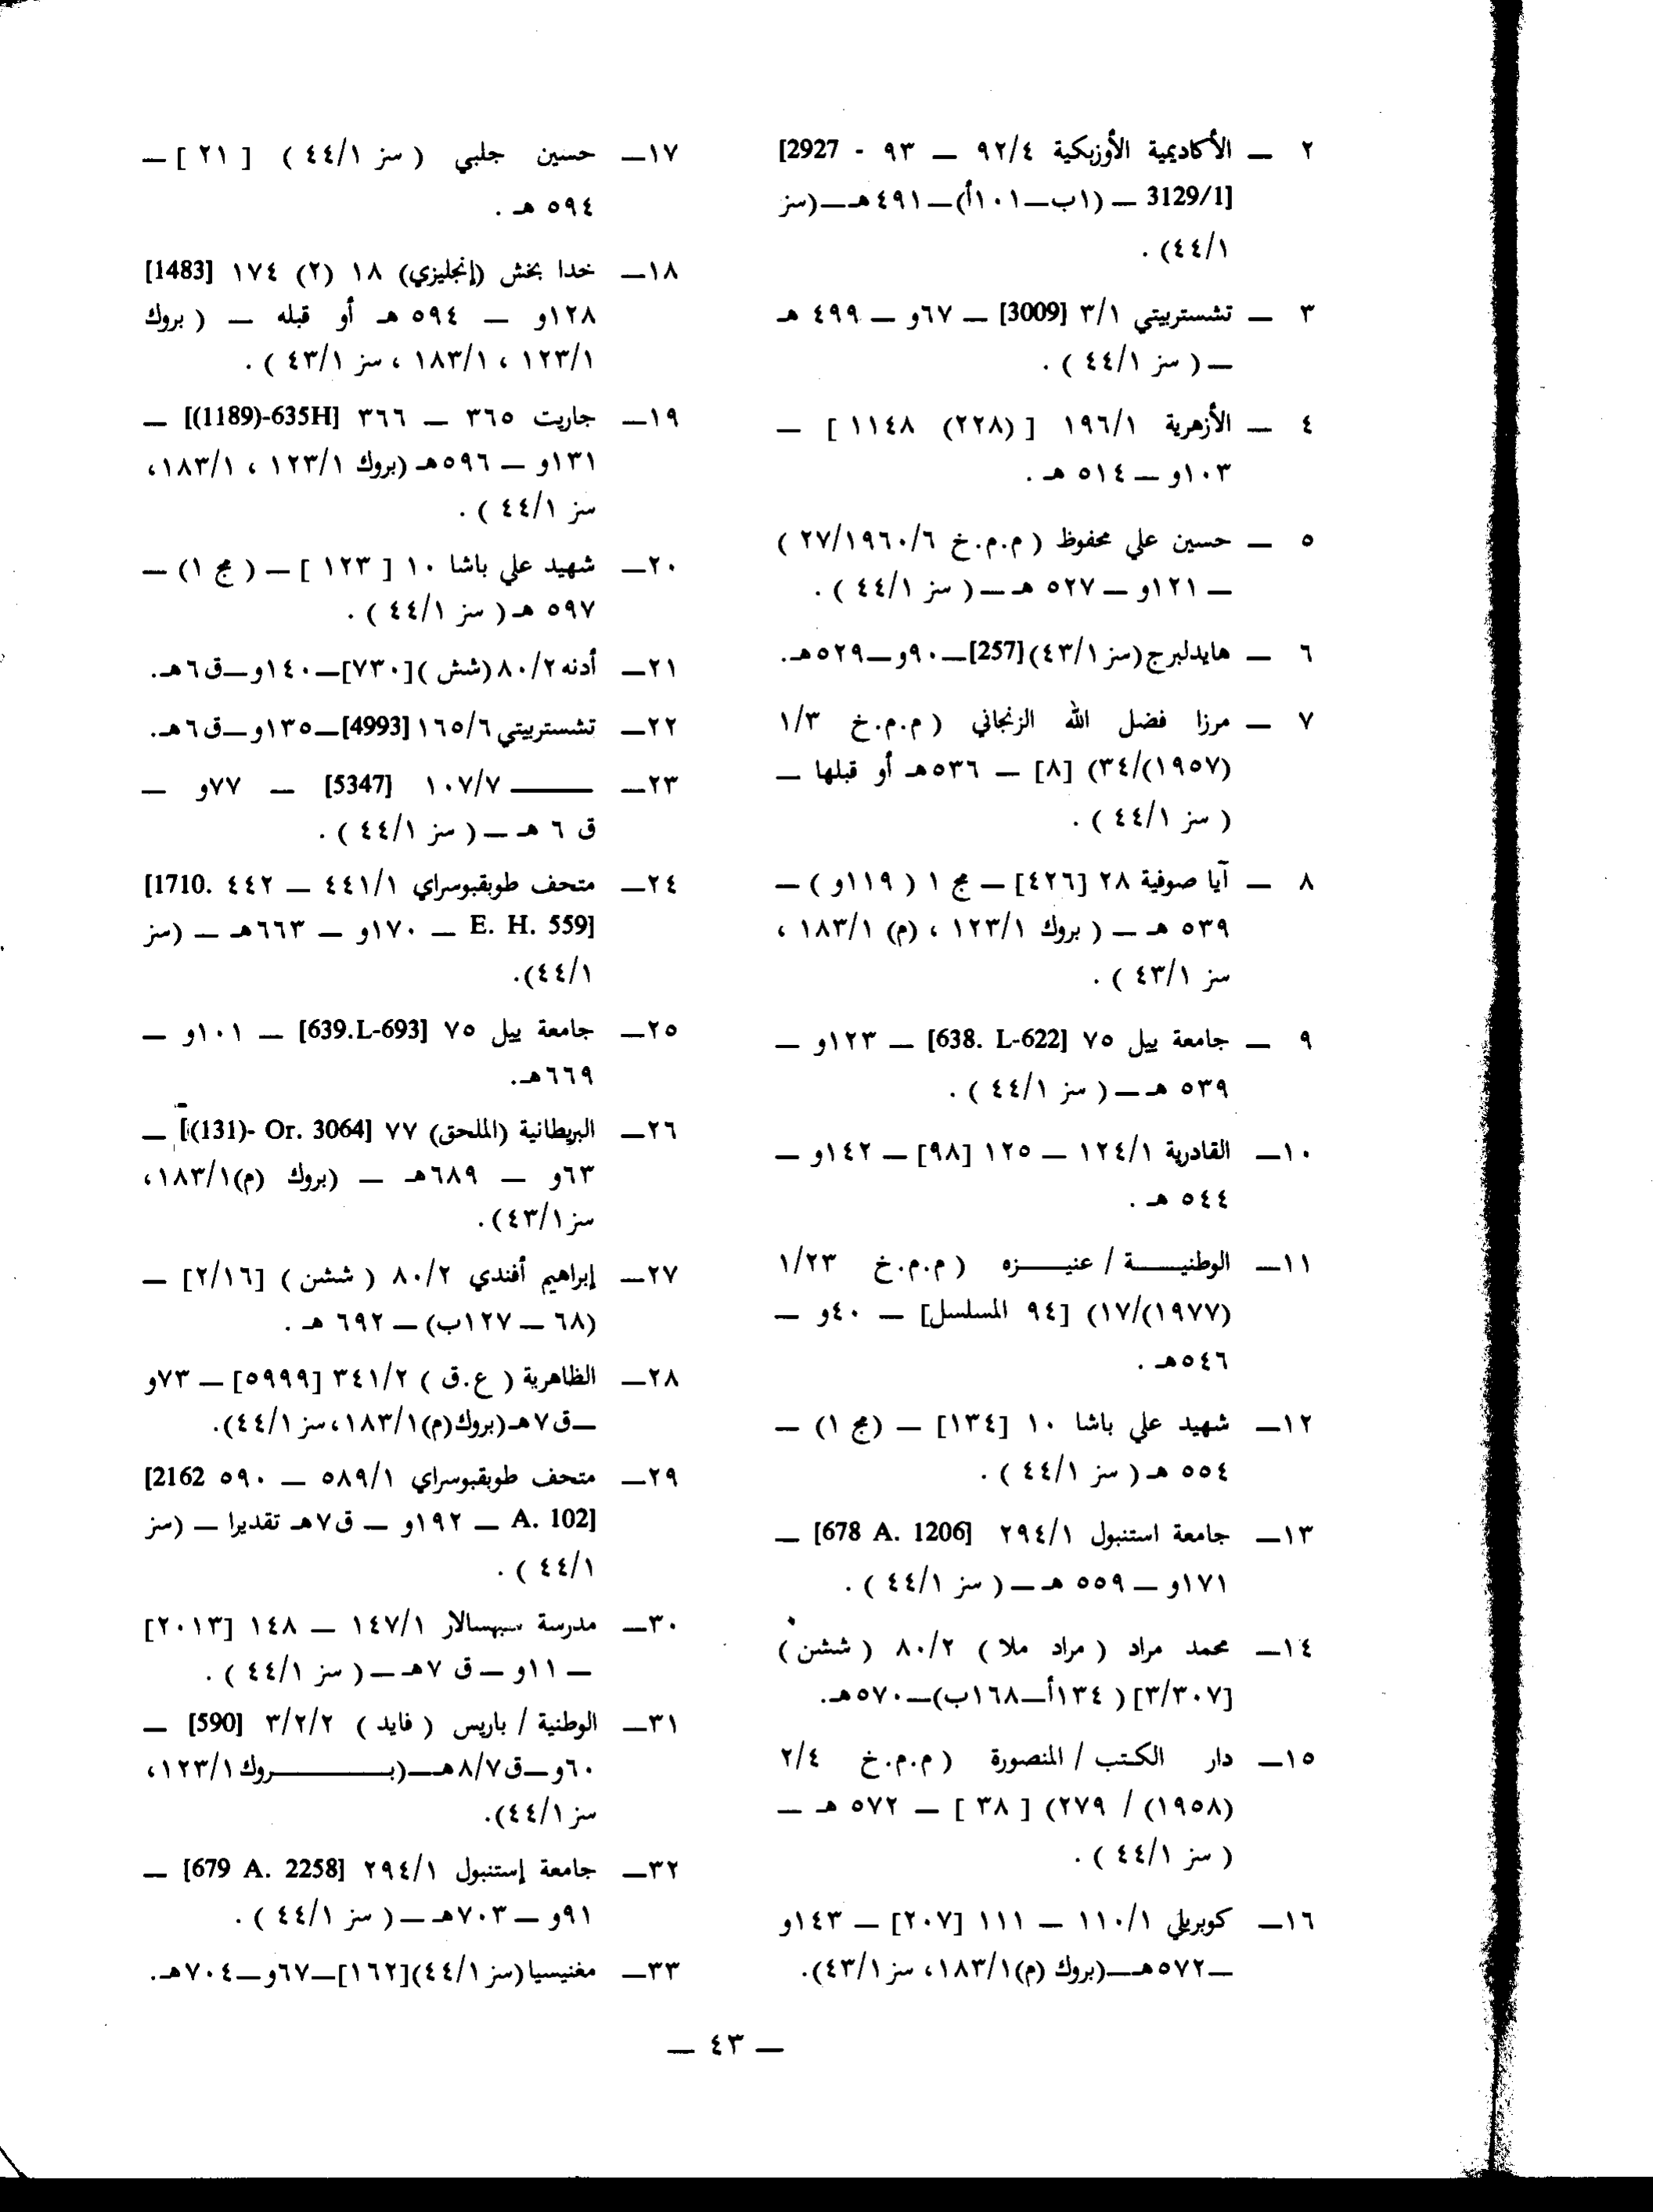 ٢ — الأكاديمية الأوزبكية ٩٢/٤ — ٩٣ - 2927]
3129/1] — (١ب—١٠١أ)—٤٩١هـ—(سز
٤٤/١) .
٣ — تشستربيتي ٣/١ [3009] — ٦٧و — ٤٩٩ هـ
— ( سز ٤٤/١ ) .
٤ — الأزهرية ١٩٦/١ [ (٢٢٨) ١١٤٨ ] —
١٠٣و — ٥١٤ هـ .
٥ — حسين علي محفوظ ( م.م.خ ٢٧/١٩٦٠/٦ )
— ١٢١و — ٥٢٧ هـ —( سز ٤٤/١ ) .
٦ — هايدلبرج(سز ٤٣/١)[257]—٩٠و—٥٢٩هـ.
٧ — مرزا فضل الله الزنجاني ( م.م.خ ١/٣
(١٩٥٧)/٣٤) [٨] — ٥٣٦هـ أو قبلها —
( سز ٤٤/١ ) .
٨ — آيا صوفية ٢٨ [٤٢٦] — مج ١ ( ١١٩و ) —
٥٣٩ هـ —( بروك ١٢٣/١ ، (م) ١٨٣/١ ،
سز ٤٣/١ ) .
٩ — جامعة ييل ٧٥ [638. L-622] — ١٢٣و —
٥٣٩ هـ —( سز ٤٤/١ ) .
١٠— القادرية ١٢٤/١ — ١٢٥ [٩٨] — ١٤٢و —
٥٤٤ هـ .
١١— الوطنيـــة / عنيـــزه ( م.م.خ ١/٢٣
(١٩٧٧)/١٧) [٩٤ المسلسل] — ٤٠و —
٥٤٦هـ .
١٢— شهيد علي باشا ١٠ [١٣٤] — (مج ١) —
٥٥٤ هـ( سز ٤٤/١ ) .
١٣— جامعة استنبول ٢٩٤/١ [678 A. 1206] —
١٧١و — ٥٥٩ هـ —( سز ٤٤/١ ) .
١٤— محمد مراد ( مراد ملا ) ٨٠/٢ ( ششن )
[٣/٣٠٧] ( ١٣٤أ—١٦٨ب)—٥٧٠هـ.
١٥— دار الكتب / المنصورة ( م.م.خ ٢/٤
(١٩٥٨) / ٢٧٩) [ ٣٨ ] — ٥٧٢ هـ —
( سز ٤٤/١ ) .
١٦— كوبريلي ١١٠/١ — ١١١ [٢٠٧] — ١٤٣و
—٥٧٢هـ—(بروك (م)١٨٣/١، سز ٤٣/١).
١٧— حسين جلبي ( سز ٤٤/١ ) [ ٢١ ] —
٥٩٤ هـ .
١٨— خدا بخش (إنجليزي) ١٨ (٢) ١٧٤ [1483]
١٢٨و — ٥٩٤ هـ أو قبله — ( بروك
١٢٣/١ ، ١٨٣/١ ، سز ٤٣/١ ) .
١٩— جاريت ٣٦٥ — ٣٦٦ [(1189)-635H] —
١٣١و — ٥٩٦هـ (بروك ١٢٣/١ ، ١٨٣/١،
سز ٤٤/١ ) .
٢٠— شهيد علي باشا ١٠ [ ١٢٣ ] — ( مج ١) —
٥٩٧ هـ( سز ٤٤/١ ) .
٢١— أدنه ٨٠/٢(شش )[٧٣٠]—١٤٠و—ق٦هـ.
٢٢— تشستربيتي ١٦٥/٦ [4993]—١٣٥و—ق٦هـ.
٢٣— ——— ١٠٧/٧ [5347] — ٧٧و —
ق ٦ هـ —( سز ٤٤/١ ) .
٢٤— متحف طوبقبوسراي ٤٤١/١ — ٤٤٢ .1710]
E. H. 559] — ١٧٠و — ٦٦٣هـ — (سز
٤٤/١).
٢٥— جامعة ييل ٧٥ [639.L-693] — ١٠١و —
٦٦٩هـ.
٢٦— البريطانية (الملحق) ٧٧ [(131)- Or. 3064] —
٦٣و — ٦٨٩هـ — (بروك (م)١٨٣/١،
سز ٤٣/١).
٢٧— إبراهيم أفندي ٨٠/٢ ( ششن ) [٢/١٦] —
(٦٨ — ١٢٧ب) — ٦٩٢ هـ .
٢٨— الظاهرية ( ع.ق ) ٣٤١/٢ [٥٩٩٩] — ٧٣و
—ق٧هـ—(بروك(م)١٨٣/١،سز ٤٤/١).
٢٩— متحف طوبقبوسراي ٥٨٩/١ — ٥٩٠ 2162]
A. 102] — ١٩٢و — ق٧هـ تقديرا — (سز
٤٤/١ ) .
٣٠— مدرسة سبهسالار ١٤٧/١ — ١٤٨ [٢٠١٣]
— ١١و — ق ٧هـ —( سز ٤٤/١ ) .
٣١— الوطنية / باريس ( فايد ) ٣/٢/٢ [590] —
٦٠و—ق٨/٧هـ—(بـــــروك١٢٣/١،
سز٤٤/١).
٣٢— جامعة إستنبول ٢٩٤/١ [679 A. 2258] —
٩١و — ٧٠٣هـ —( سز ٤٤/١ ) .
٣٣— مغنيسيا(سز ٤٤/١)[١٦٢]—٦٧و—٧٠٤هـ.
— ٤٣ —